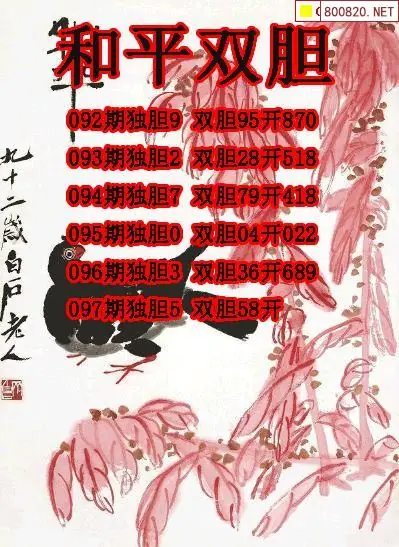 C800820.NET
和平双胆
092期独胆9 双胆95开870
093期独胆2 双胆28开518
094期独胆7 双胆79开418
095期独胆0 双胆04开022
096期独胆3 双胆36开689
097期独胆5 双胆58开
九十二岁白石老人